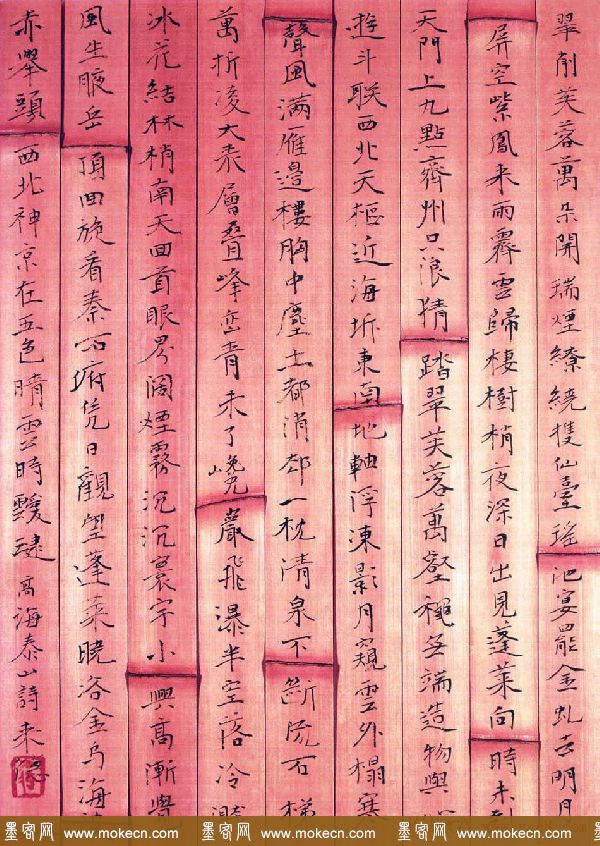 翠削芙蓉萬朵開瑞煙繚繞擁仙臺瑤池宴罷金虬去明月
屏空紫鳳來雨霽雲歸棲樹梢夜深日出見蓬萊向時未
天門上九點齊州只浪猜踏翠芙蓉萬壑無端造物與
遊斗聯西北天樞近海坼東南地軸浮凍影月窺雲外榻寒
聲風滿雁邊樓胸中塵土都消卻一枕清泉不斷流石梯
萬折凌大泰層疊峰巒青未了巉巖飛瀑半空落冷濺
冰花結林梢南天回首眼界闊煙霧沉沉寰宇小興高漸覺
風生腋岳頂回旋看秦石府凭日觀望蓬萊曉浴金烏海
赤舉頭西北神京在五色晴雲時靉靆高海泰山詩
墨客网 www.mokecn.com 墨客网 www.mokecn.com 墨客网 www.mokecn.com